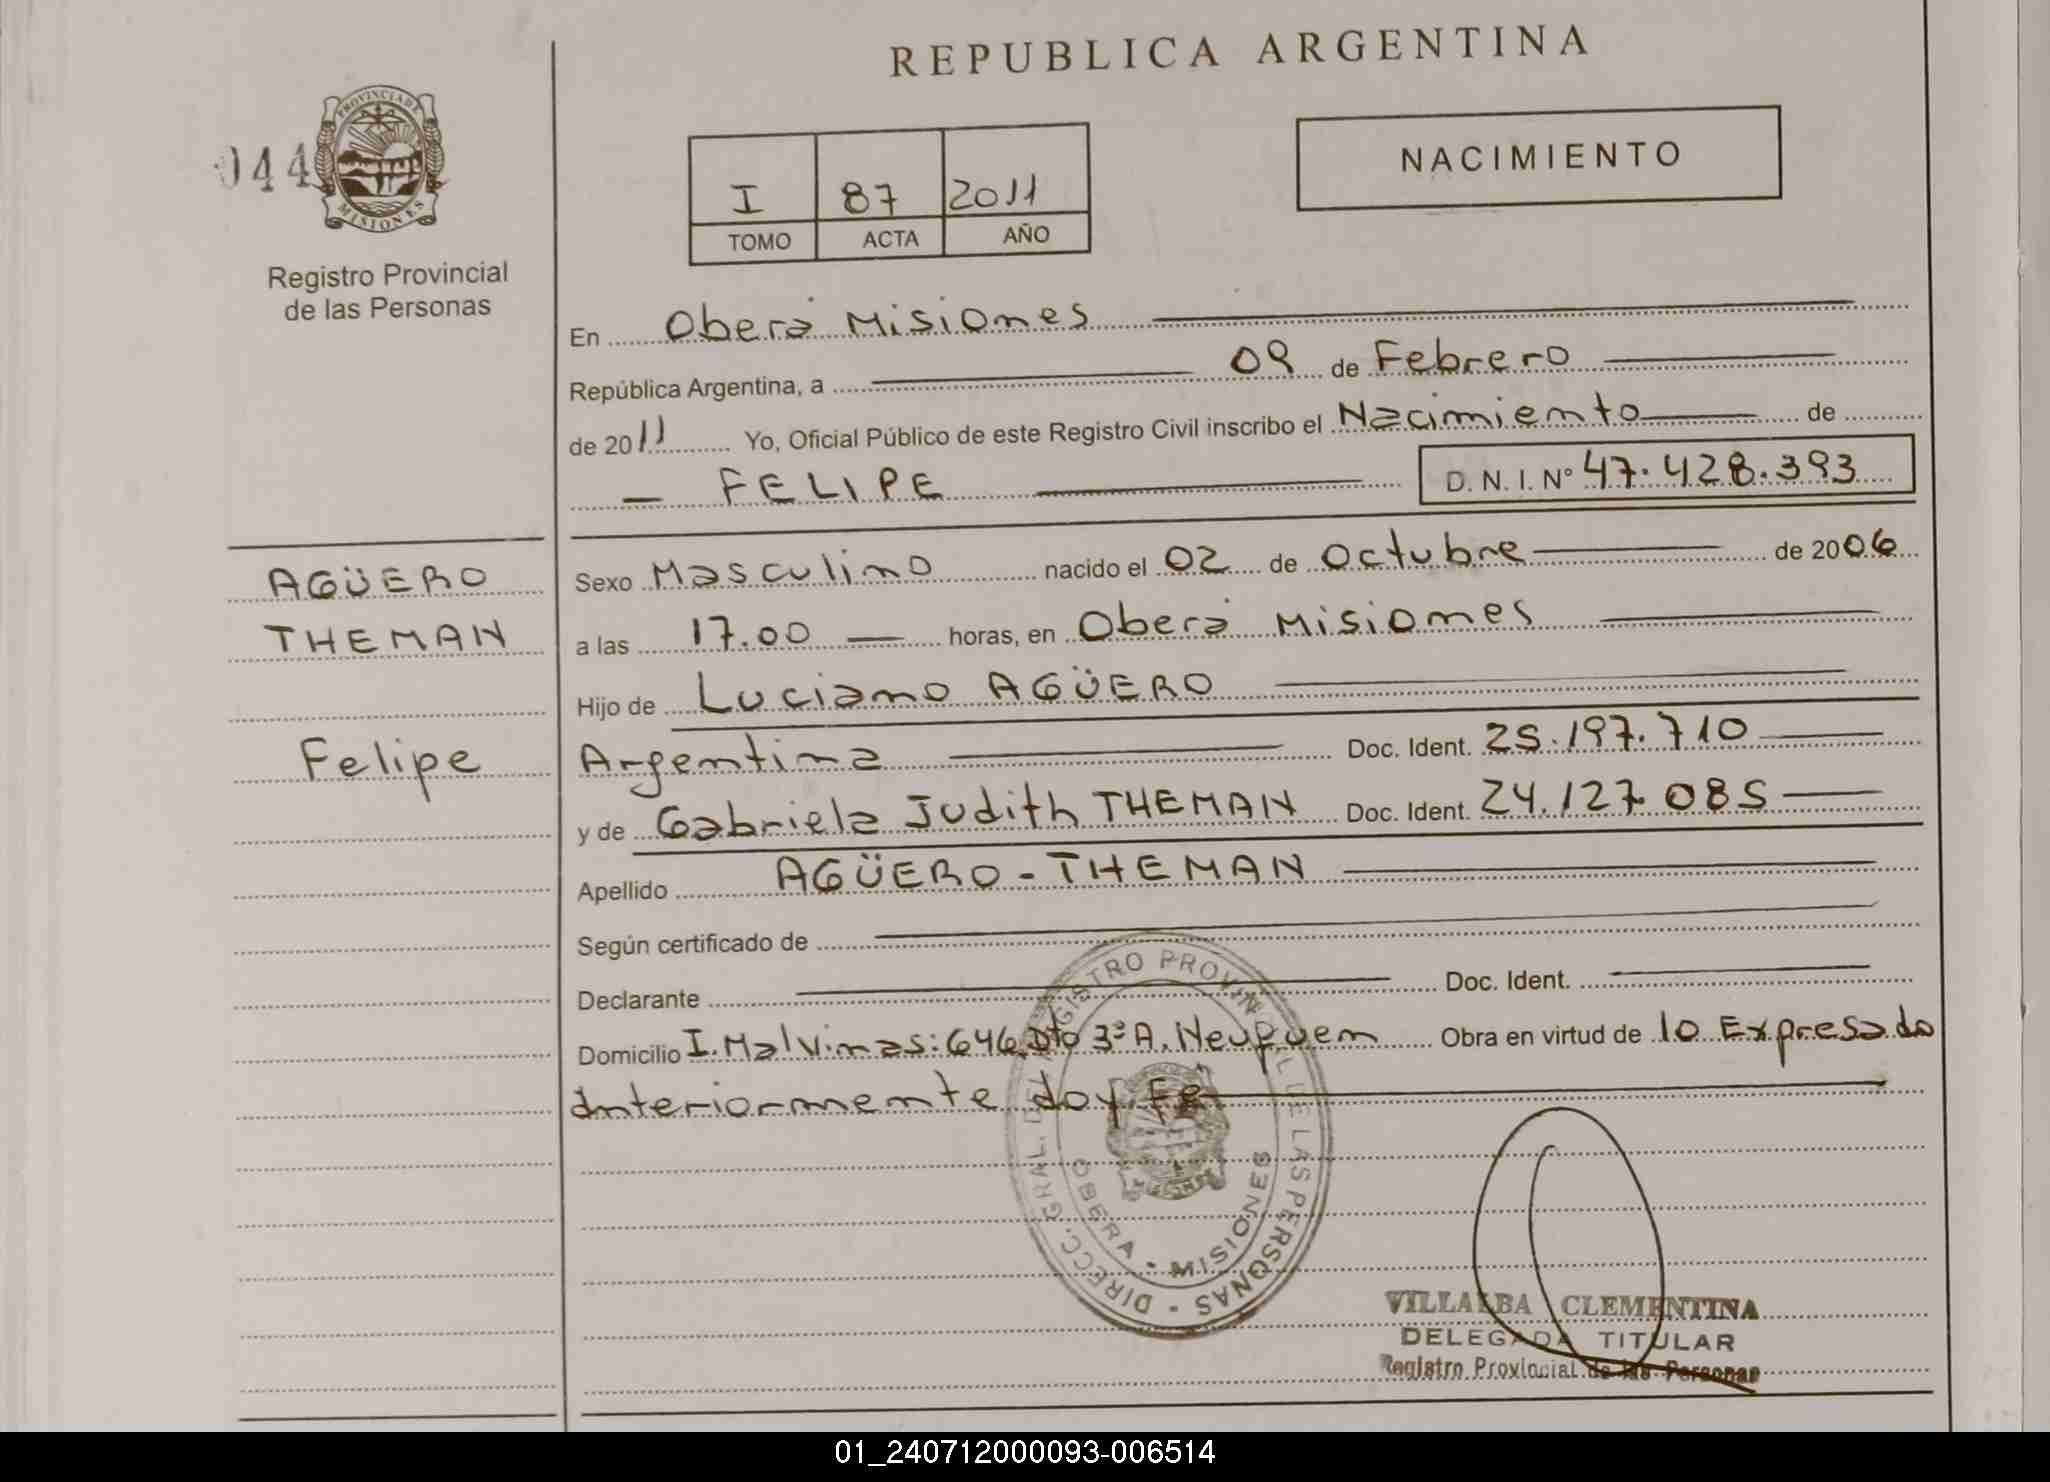 REPUBLICA ARGENTINA
044
PROVINCIA DE
MISIONES
Registro Provincial
de las Personas
NACIMIENTO
I 87 2011
TOMO ACTA AÑO
En Oberá Misiones
República Argentina, a 09 de Febrero
de 2011 Yo, Oficial Público de este Registro Civil inscribo el Nacimiento de
FELIPE D. N. I. Nº 47.428.393
AGÜERO
THEMAN
Felipe
Sexo Masculino nacido el 02 de Octubre de 2006
a las 17.00 horas, en Oberá Misiones
Hijo de Luciano AGÜERO
Argentina Doc. Ident. 25.197.710
y de Gabriela Judith THEMAN Doc. Ident. 24.127.085
Apellido AGÜERO-THEMAN
Según certificado de
Declarante Doc. Ident.
Domicilio I. Malvinas: 646 Dto 3º A. Neuquen Obra en virtud de lo Expresado
Anteriormente doy Fe
DIRECC. GRAL. DEL REGISTRO PROVINCIAL DE LAS PERSONAS
OBERA - MISIONES
VILLALBA CLEMENTINA
DELEGADA TITULAR
Registro Provincial de las Personas
01_240712000093-006514